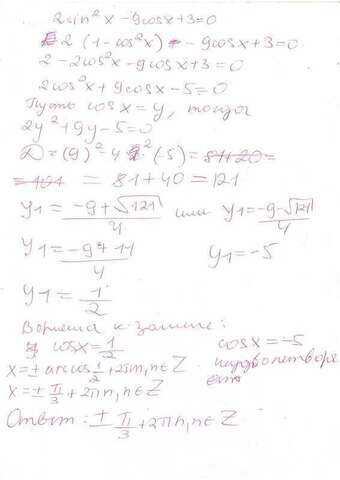 2sin²x - 9cosx + 3 = 0
2 (1 - cos²x) - 9cosx + 3 = 0
2 - 2cos²x - 9cosx + 3 = 0
2cos²x + 9cosx - 5 = 0
Пусть cosx = y, тогда
2y² + 9y - 5 = 0
D = (9)² - 4 · 2 · (-5) = 81+20 =
= 101 = 81 + 40 = 121
y1 = (-9 + √121)/4 или y1 = (-9 - √121)/4
y1 = (-9 + 11)/4 y1 = -5
y1 = 1/2
Вернемся к замене:
cosx = 1/2 cosx = -5
x = ± arccos 1/2 + 2πn, n ∈ Z
x = ± π/3 + 2πn, n ∈ Z
Ответ: ± π/3 + 2πn, n ∈ Z